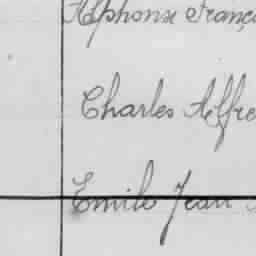 Alphonse Franço
Charles Alfre
Emile Jean